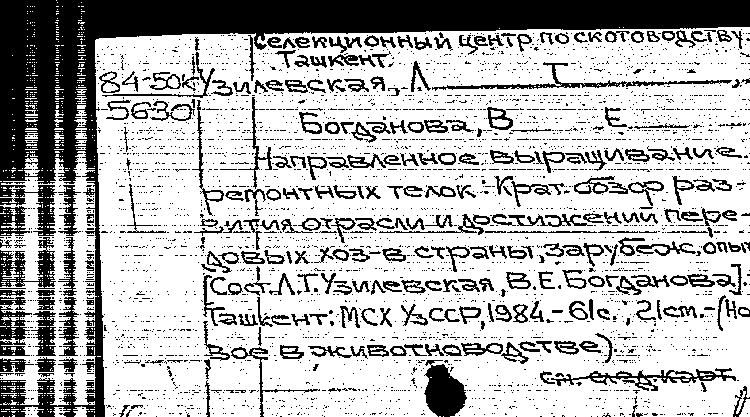 Селекционный центр по скотоводству.
Ташкент.
84-50к Узилевская, Л Т ,
5630
Богданова, В Е
Направленное выращивание
ремонтных телок: Крат. обзор раз-
вития отрасли и достижений пере-
довых хоз-в страны, зарубеж. опыт
[Сост. Л.Т. Узилевская, В.Е. Богданова].
Ташкент: МСХ УзССР, 1984. - 61с.; 21см. - (Но
вое в животноводстве).
см. след. карт.